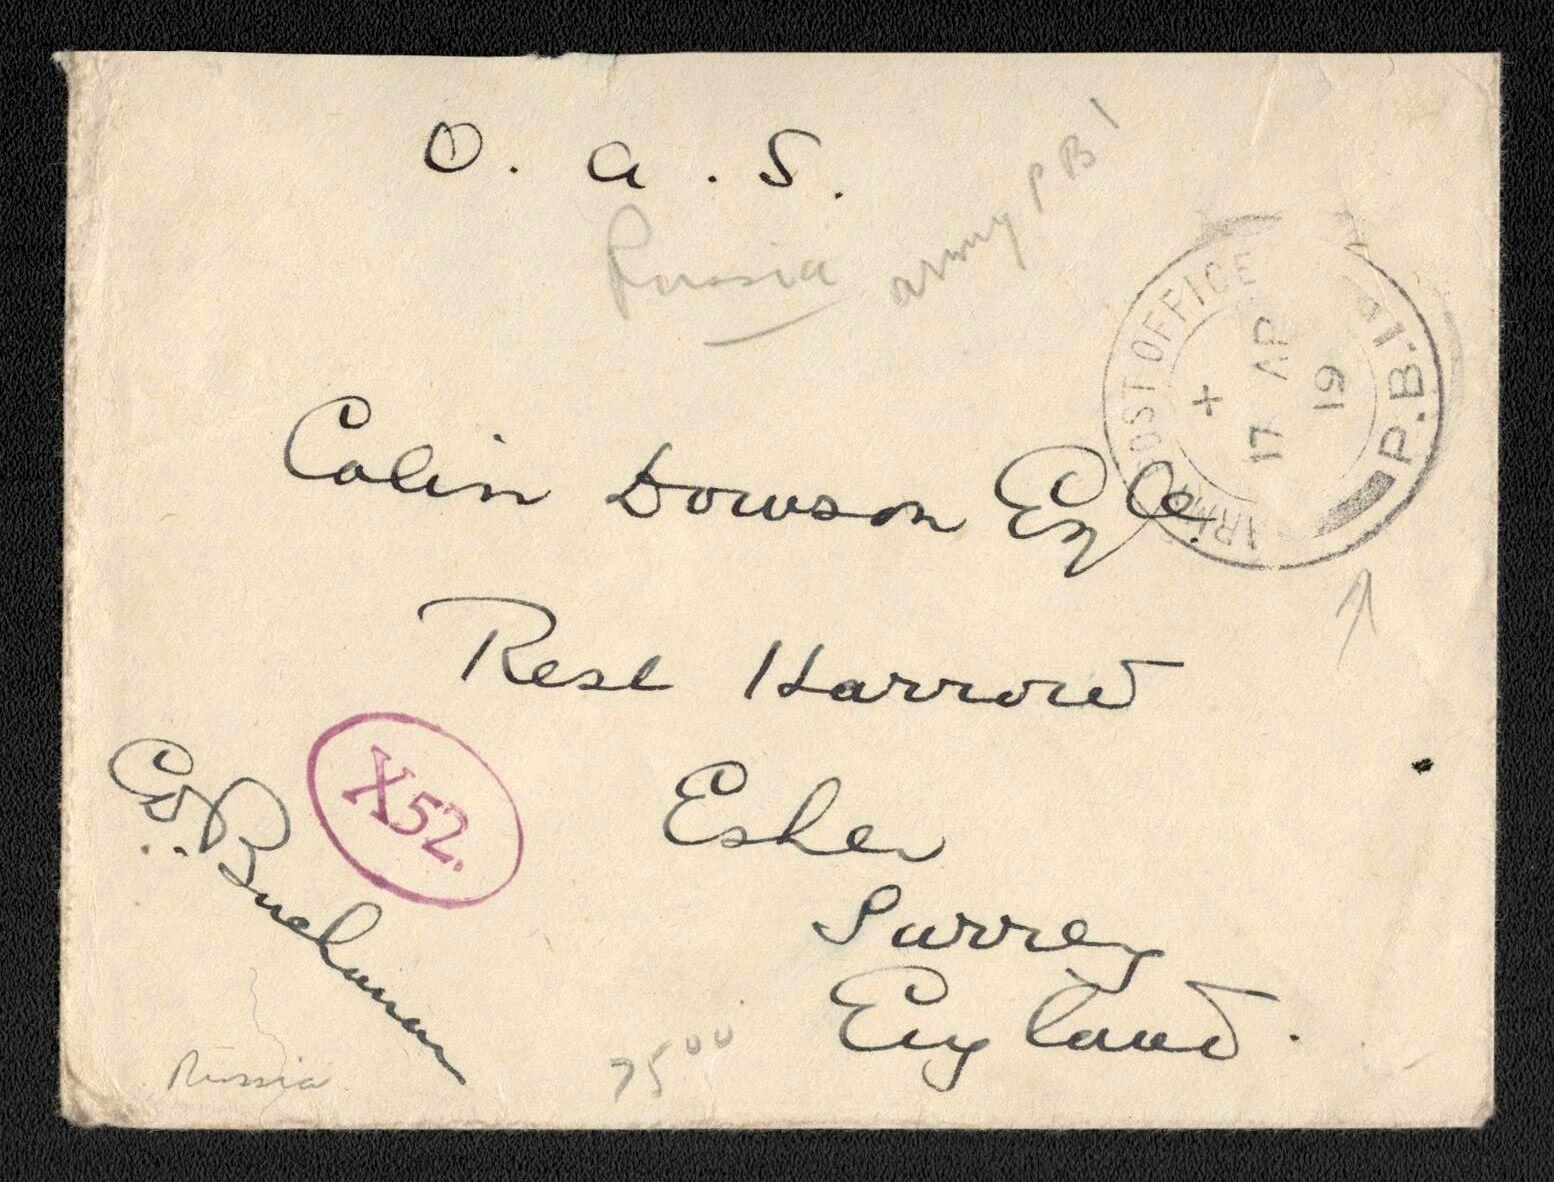 O. a. S.
Russia
army P B 1
ARMY POST OFFICE
P.B.1.
+
17 AP
19
Colin Dowson Esqre.
Rest Harrow
Esher
Surrey
England.
X52.
Buchanan
Russia
75 00